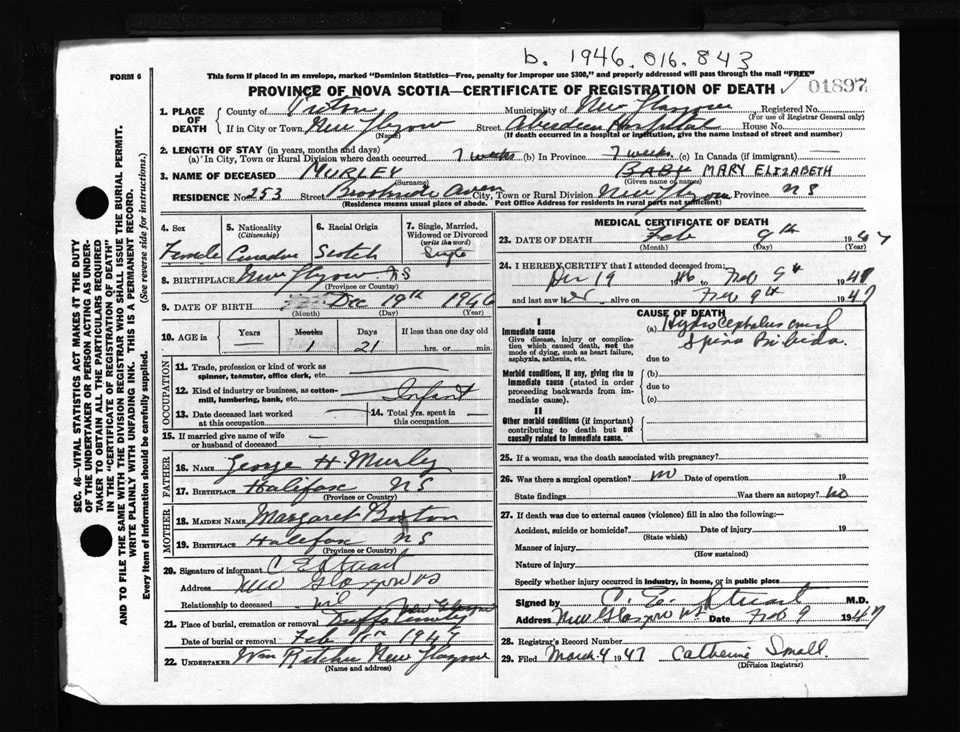 b. 1946. 016. 843
FORM 6
This form if placed in an envelope, marked "Dominion Statistics—Free, penalty for improper use $300," and properly addressed will pass through the mail "FREE"
PROVINCE OF NOVA SCOTIA—CERTIFICATE OF REGISTRATION OF DEATH 01897
1. PLACE OF DEATH
County of Pictou Municipality of New Glasgow Registered No.
(For use of Registrar General only)
If in City or Town New Glasgow Street Aberdeen Hospital House No.
(Name) (If death occurred in a hospital or institution, give the name instead of street and number)
2. LENGTH OF STAY (in years, months and days)
(a) In City, Town or Rural Division where death occurred 7 weeks (b) In Province 7 weeks (c) In Canada (if immigrant) —
3. NAME OF DECEASED MURLEY BABY MARY ELIZABETH
(Surname) (Given name or names)
RESIDENCE No. 253 Street City, Town or Rural Division New Glasgow Province NS
(Residence means usual place of abode. Post Office Address for residents in rural parts not sufficient)
4. Sex
Female
5. Nationality
(Citizenship)
Canadian
6. Racial Origin
Scotch
7. Single, Married, Widowed or Divorced
(write the word)
Single
8. BIRTHPLACE New Glasgow NS
(Province or Country)
9. DATE OF BIRTH Dec 19th 1946
(Month) (Day) (Year)
10. AGE in
Years Months Days If less than one day old
— 1 21 hrs. or min.
OCCUPATION
11. Trade, profession or kind of work as
spinner, teamster, office clerk, etc. —
12. Kind of industry or business, as cotton-
mill, lumbering, bank, etc. Infant
13. Date deceased last worked
at this occupation —
14. Total yrs. spent in
this occupation —
15. If married give name of wife
or husband of deceased —
FATHER
16. NAME George H Murley
17. BIRTHPLACE Halifax NS
(Province or Country)
MOTHER
18. MAIDEN NAME Margaret
19. BIRTHPLACE Halifax NS
(Province or Country)
20. Signature of informant C E Stuart
Address New Glasgow NS
Relationship to deceased
21. Place of burial, cremation or removal New Glasgow
Date of burial or removal Feb 1947
22. UNDERTAKER Wm Ritchie New Glasgow
(Name and address)
MEDICAL CERTIFICATE OF DEATH
23. DATE OF DEATH Feb 9th 1947
(Month) (Day)
24. I HEREBY CERTIFY that I attended deceased from:
Dec 19 1946 Feb 9th 1947
and last saw alive on Feb 9th 1947
CAUSE OF DEATH
I
Immediate cause
Give disease, injury or complica-
tion which caused death, not the
mode of dying, such as heart failure,
asphyxia, asthenia, etc.
(a) Hydrocephalus and
Spina Bifida.
due to
Morbid conditions, if any, giving rise to
immediate cause (stated in order
proceeding backwards from im-
mediate cause).
(b)
due to
(c)
II
Other morbid conditions (if important)
contributing to death but not
causally related to immediate cause.
25. If a woman, was the death associated with pregnancy?
26. Was there a surgical operation? no Date of operation 19
State findings Was there an autopsy? no
27. If death was due to external causes (violence) fill in also the following:—
Accident, suicide or homicide? Date of injury 19
(State which)
Manner of injury
(How sustained)
Nature of injury
Specify whether injury occurred in industry, in home, or in public place
Signed by C. E. Stuart M.D.
Address New Glasgow NS Date Feb 9 1947
28. Registrar's Record Number
29. Filed March 4 1947 Catherine Small
(Division Registrar)
SEC. 46—VITAL STATISTICS ACT MAKES IT THE DUTY
OF THE UNDERTAKER OR PERSON ACTING AS UNDER-
TAKER TO OBTAIN ALL THE PARTICULARS REQUIRED
IN THE "CERTIFICATE OF REGISTRATION OF DEATH"
AND TO FILE THE SAME WITH THE DIVISION REGISTRAR WHO SHALL ISSUE THE BURIAL PERMIT.
WRITE PLAINLY WITH UNFADING INK. THIS IS A PERMANENT RECORD.
Every item of information should be carefully supplied. (See reverse side for instructions.)